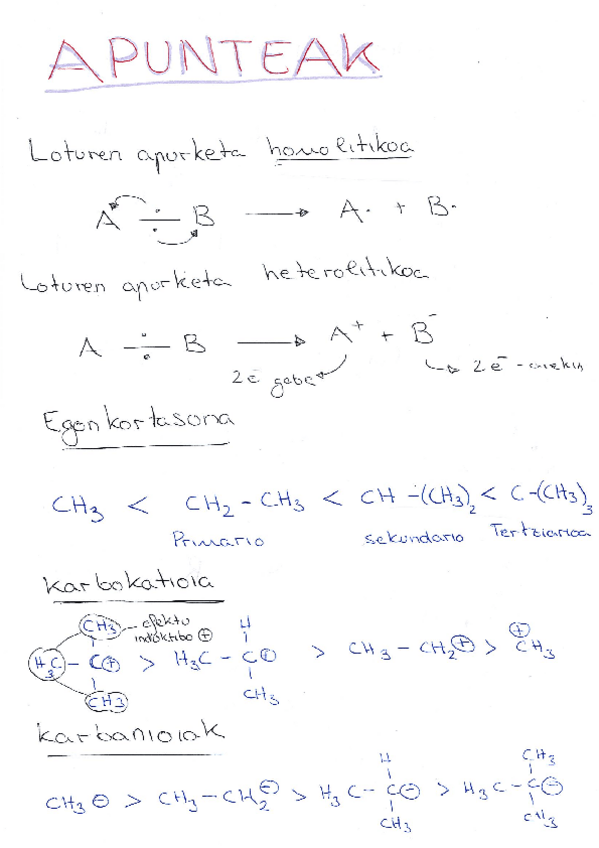 APUNTEAK
Loturen apurketa homolitikoa
A ÷ B → A· + B·
Loturen apurketa heterolitikoa
A ÷ B → A⁺ + B⁻
2e⁻ gabe 2e⁻-arekin
Egonkortasona
CH₃ < CH₂ - CH₃ < CH -(CH₃)₂ < C-(CH₃)₃
Primario sekundario Tertziarioa
Karbokatioia
CH₃ - efektu H
induktibo ⊕
H₃C - C⊕ > H₃C - C⊕ > CH₃ - CH₂⊕ > ⊕CH₃
CH₃ CH₃
Karbanioiak
H CH₃
CH₃⊖ > CH₃ - CH₂⊖ > H₃C - C⊖ > H₃C - C⊖
CH₃ CH₃